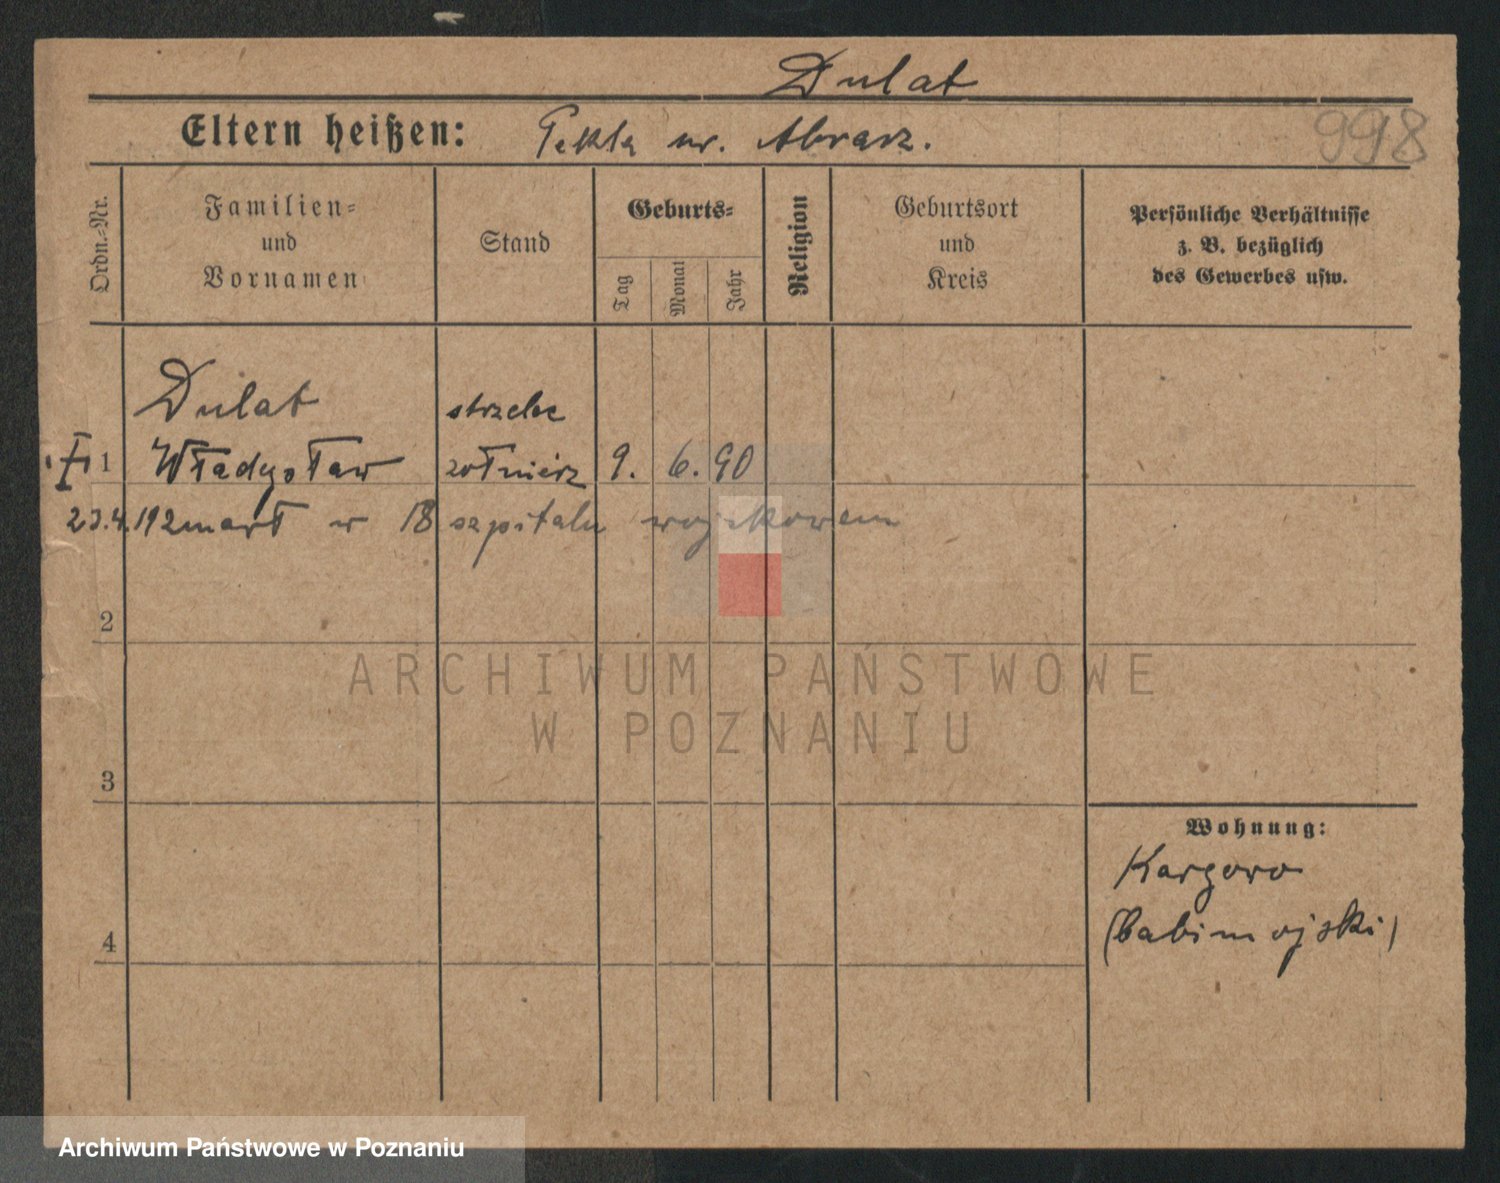 Dulat
Eltern heißen: Tekla ur. Abrarz.
998
Ordn.-Nr.
Familien=
und
Vornamen
Stand
Geburts=
Tag
Monat
Jahr
Religion
Geburtsort
und
Kreis
Persönliche Verhältnisse
z. B. bezüglich
des Gewerbes usw.
Dulat strzelec
1 Władysław żołnierz 9. 6. 90
zmarł w 18 szpitalu wojskowem
2
3
4
Wohnung:
Kargowo
(babimojski)
ARCHIWUM PAŃSTWOWE
W POZNANIU
Archiwum Państwowe w Poznaniu